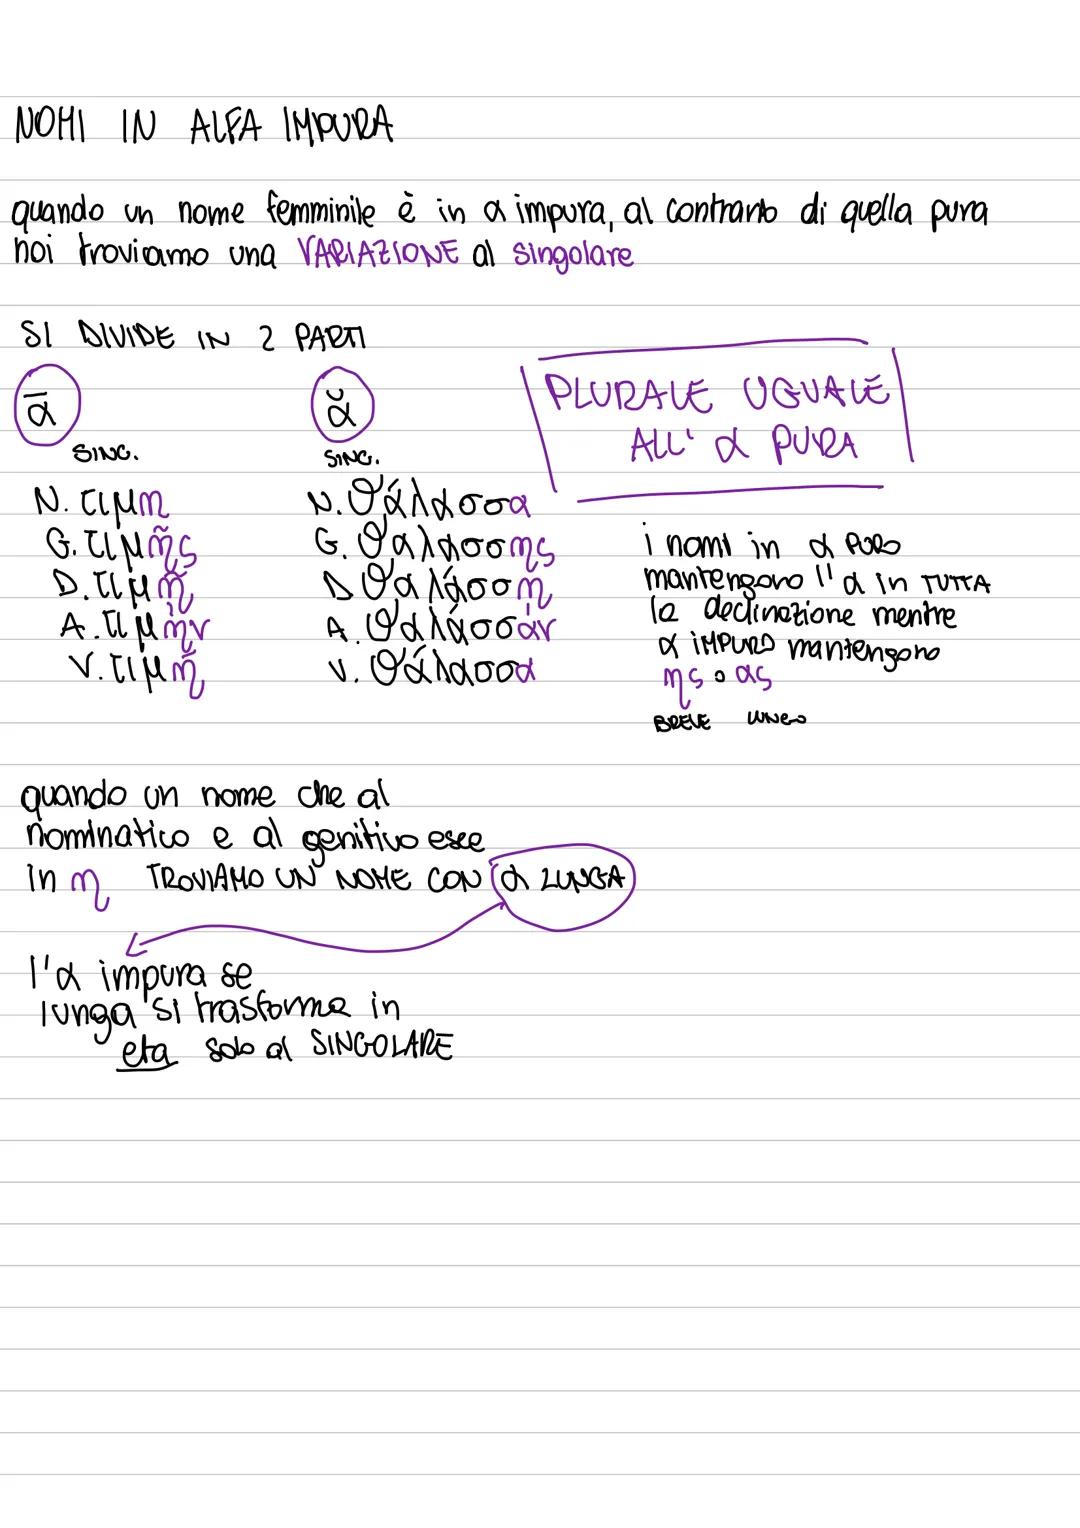 NOMI IN ALFA IMPURA
quando un nome femminile è in α impura, al contrario di quella pura
noi troviamo una VARIAZIONE al singolare
SI DIVIDE IN 2 PARTI
ᾱ
SING.
N. τιμη
G. τιμη̃ς
D. τιμη̃
A. τιμὴν
V. τιμη̃
ᾰ
SING.
N. θάλασσα
G. θαλάσσης
D. θαλάσση
A. θάλάσσαν
V. θάλασσα
PLURALE UGUALE
ALL' α PURA
i nomi in α PURO
mantengono l'α in TUTTA
la declinazione mentre
α IMPURO mantengono
ης o ας
BREVE LUNGO
quando un nome che al
nominatico e al genitivo esce
in η TROVIAMO UN NOME CON α LUNGA
l'α impura se
lunga si trasforma in
eta solo al SINGOLARE